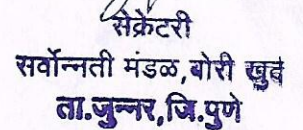 सेक्रेटरी
सर्वोन्नती मंडळ, बोरी खुर्द
ता.जुन्नर, जि.पुणे